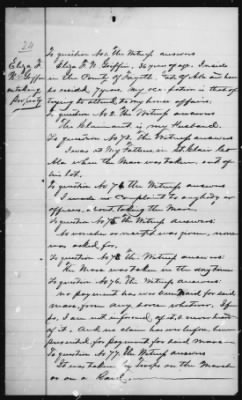 24
Eliza F.
N. Goffin
on taking
Property
To question No 1. The Witness answers
Eliza F. N. Goffin, 36 years of age. I reside
in the County of Fayette, State of Ala and have
so resided, 7 years, My occupation is that of
trying to attend to my house affairs.
To question No 2. The Witness answers
The Claimant is my Husband.
To question No 72. the Witness answers
I was at My Fathers in St. Clair
Ala when the Mare was taken, out of
his lot.
To question No 74 the Witness answers
I made no complaint to anybody or
officer, about taking the Mare.
To question No 75 the Witness answers
No voucher or receipt was given, none
was asked for.
To question No the Witness answers
The Mare was taken in the day time
To question No 76. the Witness answers
No payment has ever been made for said
mare, from any source whatever. If
so, I am not informed of it, I never heard
of it. And no claim has ever before been
presented, for payment for said mare
To question No 77. the Witness answers
It was taken by troops on the March
or on a Raid.